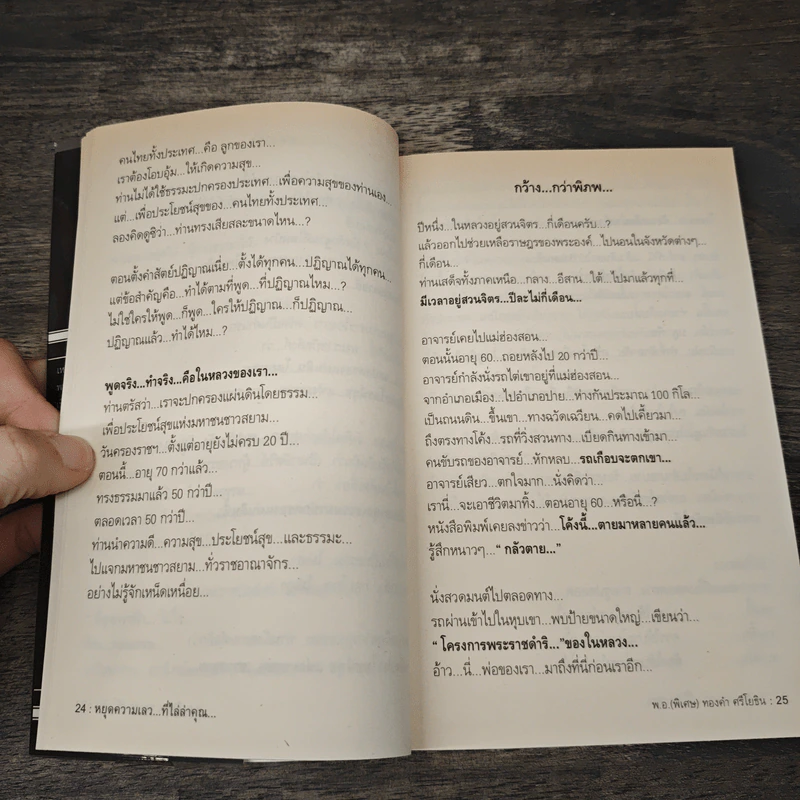 คนไทยทั้งประเทศ...คือ ลูกของเรา...
เราต้องโอบอุ้ม...ให้เกิดความสุข...
ท่านไม่ได้ใช้ธรรมะปกครองประเทศ...เพื่อความสุขของท่านเอง...
แต่...เพื่อประโยชน์สุขของ...คนไทยทั้งประเทศ...
ลองคิดดูซิว่า...ท่านทรงเสียสละขนาดไหน...?
ตอนตั้งคำสัตย์ปฏิญาณเนี่ย...ตั้งได้ทุกคน...ปฏิญาณได้ทุกคน...
แต่ข้อสำคัญคือ...ทำได้ตามที่พูด...ที่ปฏิญาณไหม...?
ไม่ใช่ใครให้พูด...ก็พูด...ใครให้ปฏิญาณ...ก็ปฏิญาณ...
ปฏิญาณแล้ว...ทำได้ไหม...?
พูดจริง...ทำจริง...คือในหลวงของเรา...
ท่านตรัสว่า...เราจะปกครองแผ่นดินโดยธรรม...
เพื่อประโยชน์สุขแห่งมหาชนชาวสยาม...
วันครองราชฯ...ตั้งแต่อายุยังไม่ครบ 20 ปี...
ตอนนี้...อายุ 70 กว่าแล้ว...
ทรงธรรมมาแล้ว 50 กว่าปี...
ตลอดเวลา 50 กว่าปี...
ท่านนำความดี...ความสุข...ประโยชน์สุข...และธรรมะ...
ไปแจกมหาชนชาวสยาม...ทั่วราชอาณาจักร...
อย่างไม่รู้จักเหน็ดเหนื่อย...
24 : หยุดความเลว...ที่ไล่ล่าคุณ...
กว้าง...กว่าพิภพ...
ปีหนึ่ง...ในหลวงอยู่สวนจิตร...กี่เดือนครับ...?
แล้วออกไปช่วยเหลือราษฎรของพระองค์...ไปนอนในจังหวัดต่างๆ...
กี่เดือน...
ท่านเสด็จทั้งภาคเหนือ...กลาง...อีสาน...ใต้...ไปมาแล้วทุกที่...
มีเวลาอยู่สวนจิตร...ปีละไม่กี่เดือน...
อาจารย์เคยไปแม่ฮ่องสอน...
ตอนนั้นอายุ 60...ถอยหลังไป 20 กว่าปี...
อาจารย์กำลังนั่งรถไต่เขาอยู่ที่แม่ฮ่องสอน...
จากอำเภอเมือง...ไปอำเภอปาย...ห่างกันประมาณ 100 กิโล...
เป็นถนนดิน...ขึ้นเขา...ทางฉวัดเฉวียน...คดไปเคี้ยวมา...
ถึงตรงทางโค้ง...รถที่วิ่งสวนทาง...เบียดกินทางเข้ามา...
คนขับรถของอาจารย์...หักหลบ...รถเกือบจะตกเขา...
อาจารย์เสียว...ตกใจมาก...นั่งคิดว่า...
เรานี่...จะเอาชีวิตมาทิ้ง...ตอนอายุ 60...หรือนี่...?
หนังสือพิมพ์เคยลงข่าวว่า...โค้งนี้...ตายมาหลายคนแล้ว...
รู้สึกหนาวๆ..." กลัวตาย..."
นั่งสวดมนต์ไปตลอดทาง...
รถผ่านเข้าไปในหุบเขา...พบป้ายขนาดใหญ่...เขียนว่า...
" โครงการพระราชดำริ..."ของในหลวง...
อ้าว...นี่...พ่อของเรา...มาถึงที่นี่ก่อนเราอีก...
พ.อ.(พิเศษ) ทองคำ ศรีโยธิน : 25